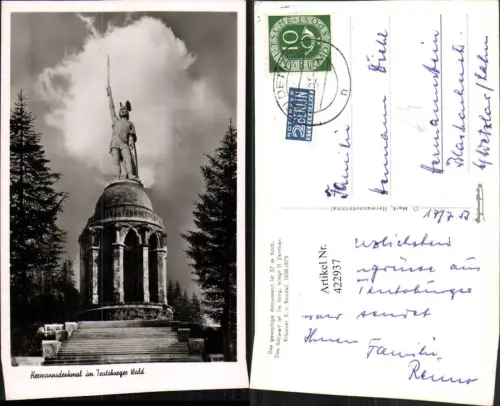 Hermannsdenkmal im Teutoburger Wald
DEUTSCHE BUNDESPOST
10
NOTOPFER
2 BERLIN
STEUERMARKE
Familie
Hermann Diehl
Hermannstein
b/Wetzlar/Lahn
O. Mark, Hermannsdenkmal
17/7 53
Artikel Nr.
422937
Das gewaltige Monument ist 57 m hoch,
Das Schwert ist 7m lang, wiegt 11 Zentner.
Erbauer E. v. Bandel, 1838/1875
Herzlichsten
Grüsse aus
Teutoburger
wald sendet
Ihnen
Familie
Renno